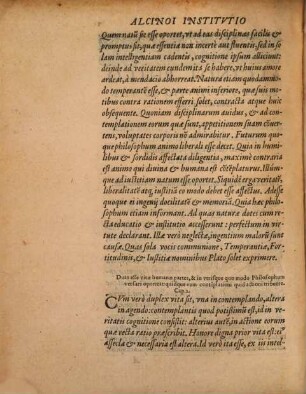 ALCINOI INSTITVTIO
Quem natū sic esse oportet, vt ad eas disciplinas facilis &
promptus sit, quæ essentiā non incertè aut fluentis, sed in so
lam intelligentiam cadentis, cognitione ipsum alliciunt:
diinde ad veritatem cundem ita se habere, vt huius amore
ardeat, à mendacio abhorreat. Natura etiam quodammo
do temperantē esse, & parte animi inferiore, quæ suis mo
tibus contra rationem efferri solet, contracta atque huic
obsequente. Quoniam disciplinarum auidus, & ad con-
templationem eorum quæ sunt, appetitionem suam
voluptates corporis nō admirabitur. Futurum quo
que philosophum animo liberali esse decet. Quia in humi
libus & sordidis affectata diligentia, maximè contraria
est animo qui diuina & humana est
que ad iustitiam natum esse oportet. Siquidē erga veritatē,
liberalitatē atq; iustitiā eo modo debet esse affectus. Adesse
quoque ei ingenij docilitatē & memoriā. Quia hæc phi-
losophum etiam informant. Ad quas naturæ dotes cum re
cta educatio & institutio accesserunt: perfectum in virtu-
te declarant. Illæ verò neglectæ, ingentium malorū sunt
causæ. Quas solā vocis communione, Temperantiæ, For-
titudinis, & Iustitiæ nominibus Plato solet exprimere.
Duas esse vitæ humanæ partes, & in vtrisque quo modo Philosophum
versari oporteat: quidque tum contemplationi quid actioni tribuere.
Cap. 2.
CVm verò duplex vita sit, vna in contemplando, altera
in agendo: contemplantis quod potissimū est, in ve-
ritatis cognitione consistit: alterius autē, in actione eorum
quæ recta ratio præscribit. Honore digna prior vita est:
assecla & necessaria est altera. Id verò ita esse, ex iis intel-